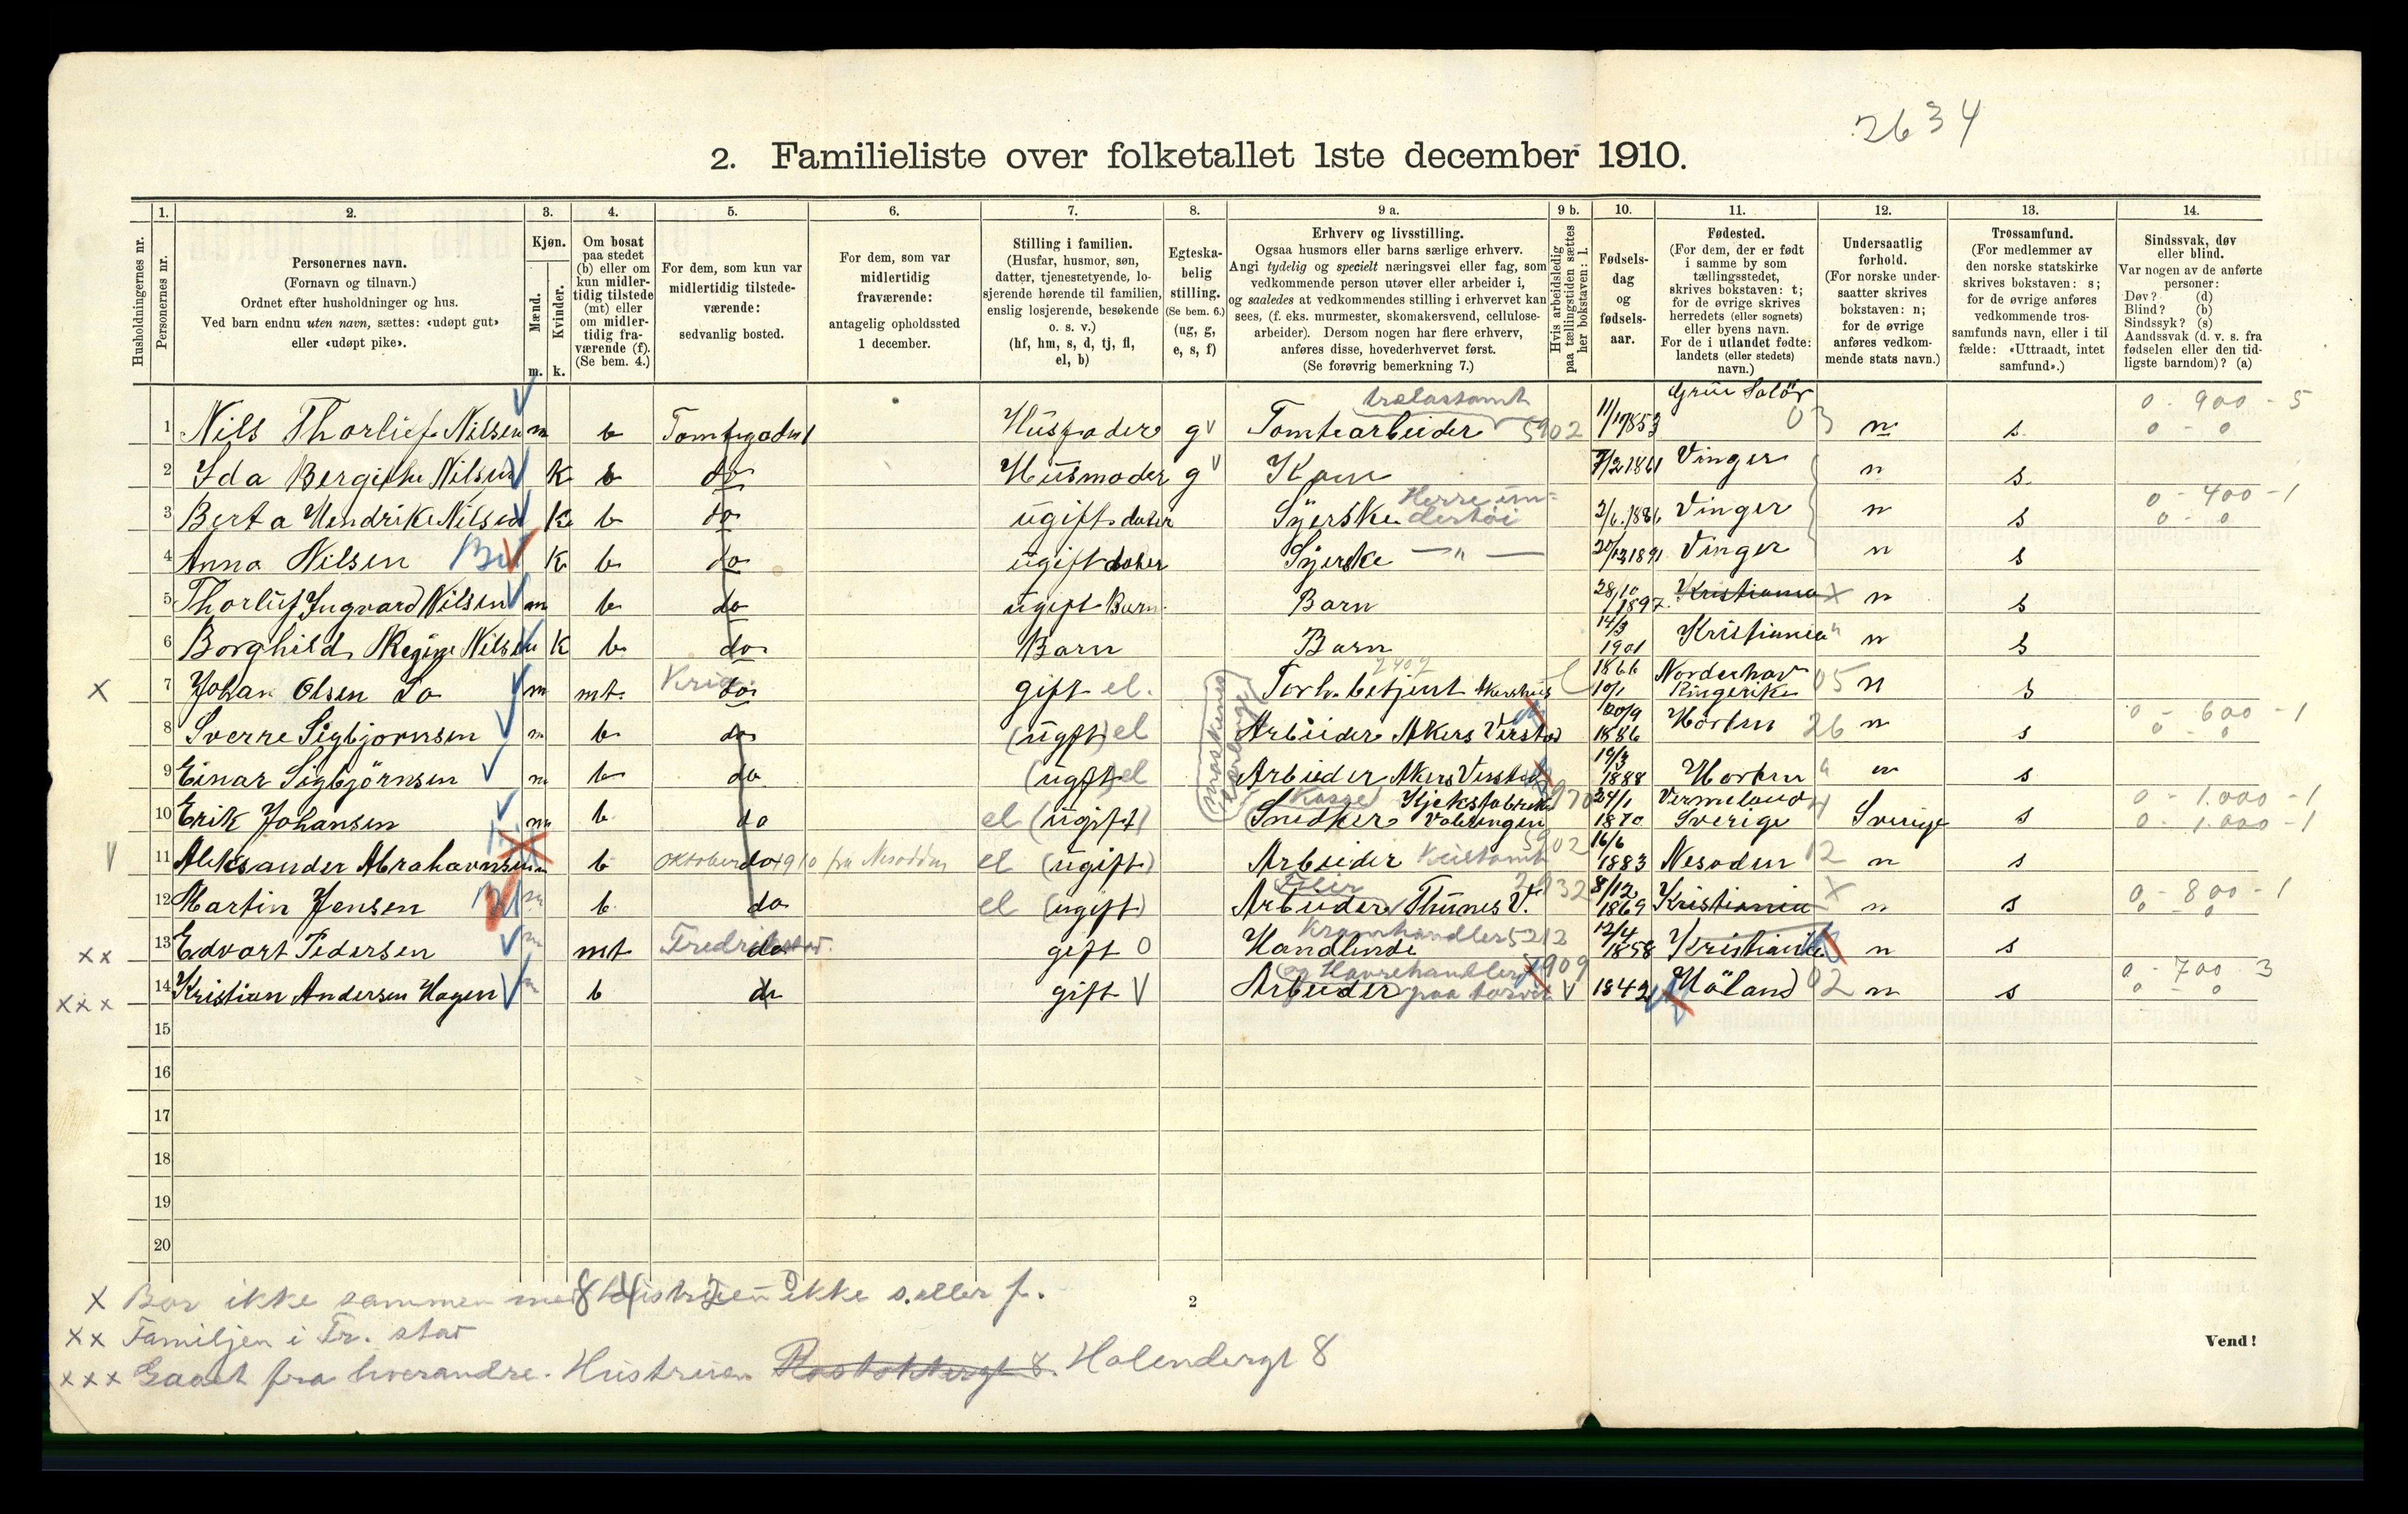 2634
2. Familieliste over folketallet 1ste december 1910.
Husholdningernes nr.
1.
Personernes nr.
2.
Personernes navn.
(Fornavn og tilnavn.)
Ordnet efter husholdninger og hus.
Ved barn endnu uten navn, sættes: «udøpt gut»
eller «udøpt pike».
3.
Kjøn.
Mænd.
Kvinder.
m. k.
4.
Om bosat
paa stedet
(b) eller om
kun midler-
tidig tilstede
(mt) eller
om midler-
tidig fra-
værende (f).
(Se bem. 4.)
5.
For dem, som kun var
midlertidig tilstede-
værende:
sedvanlig bosted.
6.
For dem, som var
midlertidig
fraværende:
antagelig opholdssted
1 december.
7.
Stilling i familien.
(Husfar, husmor, søn,
datter, tjenestetyende, lo-
sjerende hørende til familien,
enslig losjerende, besøkende
o. s. v.)
(hf, hm, s, d, tj, fl,
el, b)
8.
Egteska-
belig
stilling.
(Se bem. 6.)
(ug, g,
e, s, f)
9 a.
Erhverv og livsstilling.
Ogsaa husmors eller barns særlige erhverv.
Angi tydelig og specielt næringsvei eller fag, som
vedkommende person utøver eller arbeider i,
og saaledes at vedkommendes stilling i erhvervet kan
sees, (f. eks. murmester, skomakersvend, cellulose-
arbeider). Dersom nogen har flere erhverv,
anføres disse, hovederhvervet først.
(Se forøvrig bemerkning 7.)
9 b.
Hvis arbeidsledig
paa tællingstiden sættes
her bokstaven: l.
10.
Fødsels-
dag
og
fødsels-
aar.
11.
Fødested.
(For dem, der er født
i samme by som
tællingsstedet,
skrives bokstaven: t;
for de øvrige skrives
herredets (eller sognets)
eller byens navn.
For de i utlandet fødte:
landets (eller stedets)
navn.)
12.
Undersaatlig
forhold.
(For norske under-
saatter skrives
bokstaven: n;
for de øvrige
anføres vedkom-
mende stats navn.)
13.
Trossamfund.
(For medlemmer av
den norske statskirke
skrives bokstaven: s;
for de øvrige anføres
vedkommende tros-
samfunds navn, eller i til
fælde: «Uttraadt, intet
samfund».)
14.
Sindssvak, døv
eller blind.
Var nogen av de anførte
personer:
Døv? (d)
Blind? (b)
Sindssyk? (s)
Aandssvak (d. v. s. fra
fødselen eller den tid-
ligste barndom)? (a)
trælasttomt Grue Solör 0 - 900 - 5
1 Nils Thorlief Nilsen m b Tomtegaden 1 Husfader g v Tomtearbeider 5902 11/1 1853 03 n s 0 - 0
2 Ida Bergithe Nilsen K b do Husmoder g v Kone 7/2 1861 Vinger n s
Herreun= 0 - 400 - 1
3 Berta Hendrike Nilsen K b do ugift dater Syerske dertöi 2/6. 1886 Vinger n s 0 - 0
4 Anna Nilsen K b do ugift dater Syerske — " — 20/12 1891 Vinger n s
5 Thorluf Ingvard Nilsen m b do ugift Barn Barn 28/10 1897 Kristiania x n s
6 Borghild Regige Nilsen K b do Barn Barn 14/3 1901 Kristiania n s
2402
x 7 Johan Olsen do m mt. Kria. do gift el. Torh. betjent Akershus l 1866 10/1 Norderhov Ringerike 05 n s
0 - 600 - 1
8 Sverre Sigbjørnsen m b do (ugift) el (maskineriarbeide) Arbeider Akers Verksted 20/9 1886 Horten 26 n s 0 - 0
9 Einar Sigbjörnsen m b do (ugift) el Arbeider Akers Verksted 19/3 1888 Horten " n s
Kasse Kjeksfabrik 0 - 1.000 - 1
10 Erik Johansen m b do el (ugift) Snedker Volerengen 24/1 1870 Vermeland Sverige Sverige s 0 - 1.000 - 1
V 11 Aleksander Abrahamsen m b Oktober do 1910 fra Nesodden el (ugift) Arbeider 5902 16/6 1883 Nesoden 12 n s
Filer 2932 0 - 800 - 1
12 Martin Jensen m b do el (ugift) Arbeider Thunes V. 8/12 1869 Kristiania x n s 0 - 0
Kramhandler 5212
xx 13 Edvart Pedersen m mt Fredrikstad. do gift 0 Handlende 12/4 1858 Kristiania n s
og Havrehandler 5909 0 - 700 - 3
xxx 14 Kristian Andersen Hagen m b do gift V Arbeider paa torvet V 1842 Höland 02 n s 0 - 0
15
16
17
18
19
20
x Bor ikke sammen med Hustruen ikke s. eller f.
8 4 2 0
2
xx Familjen i Fr. stad
Vend!
xxx Gaaet fra hverandre. Hustruen Rostokkergt 8. Holendergt 8